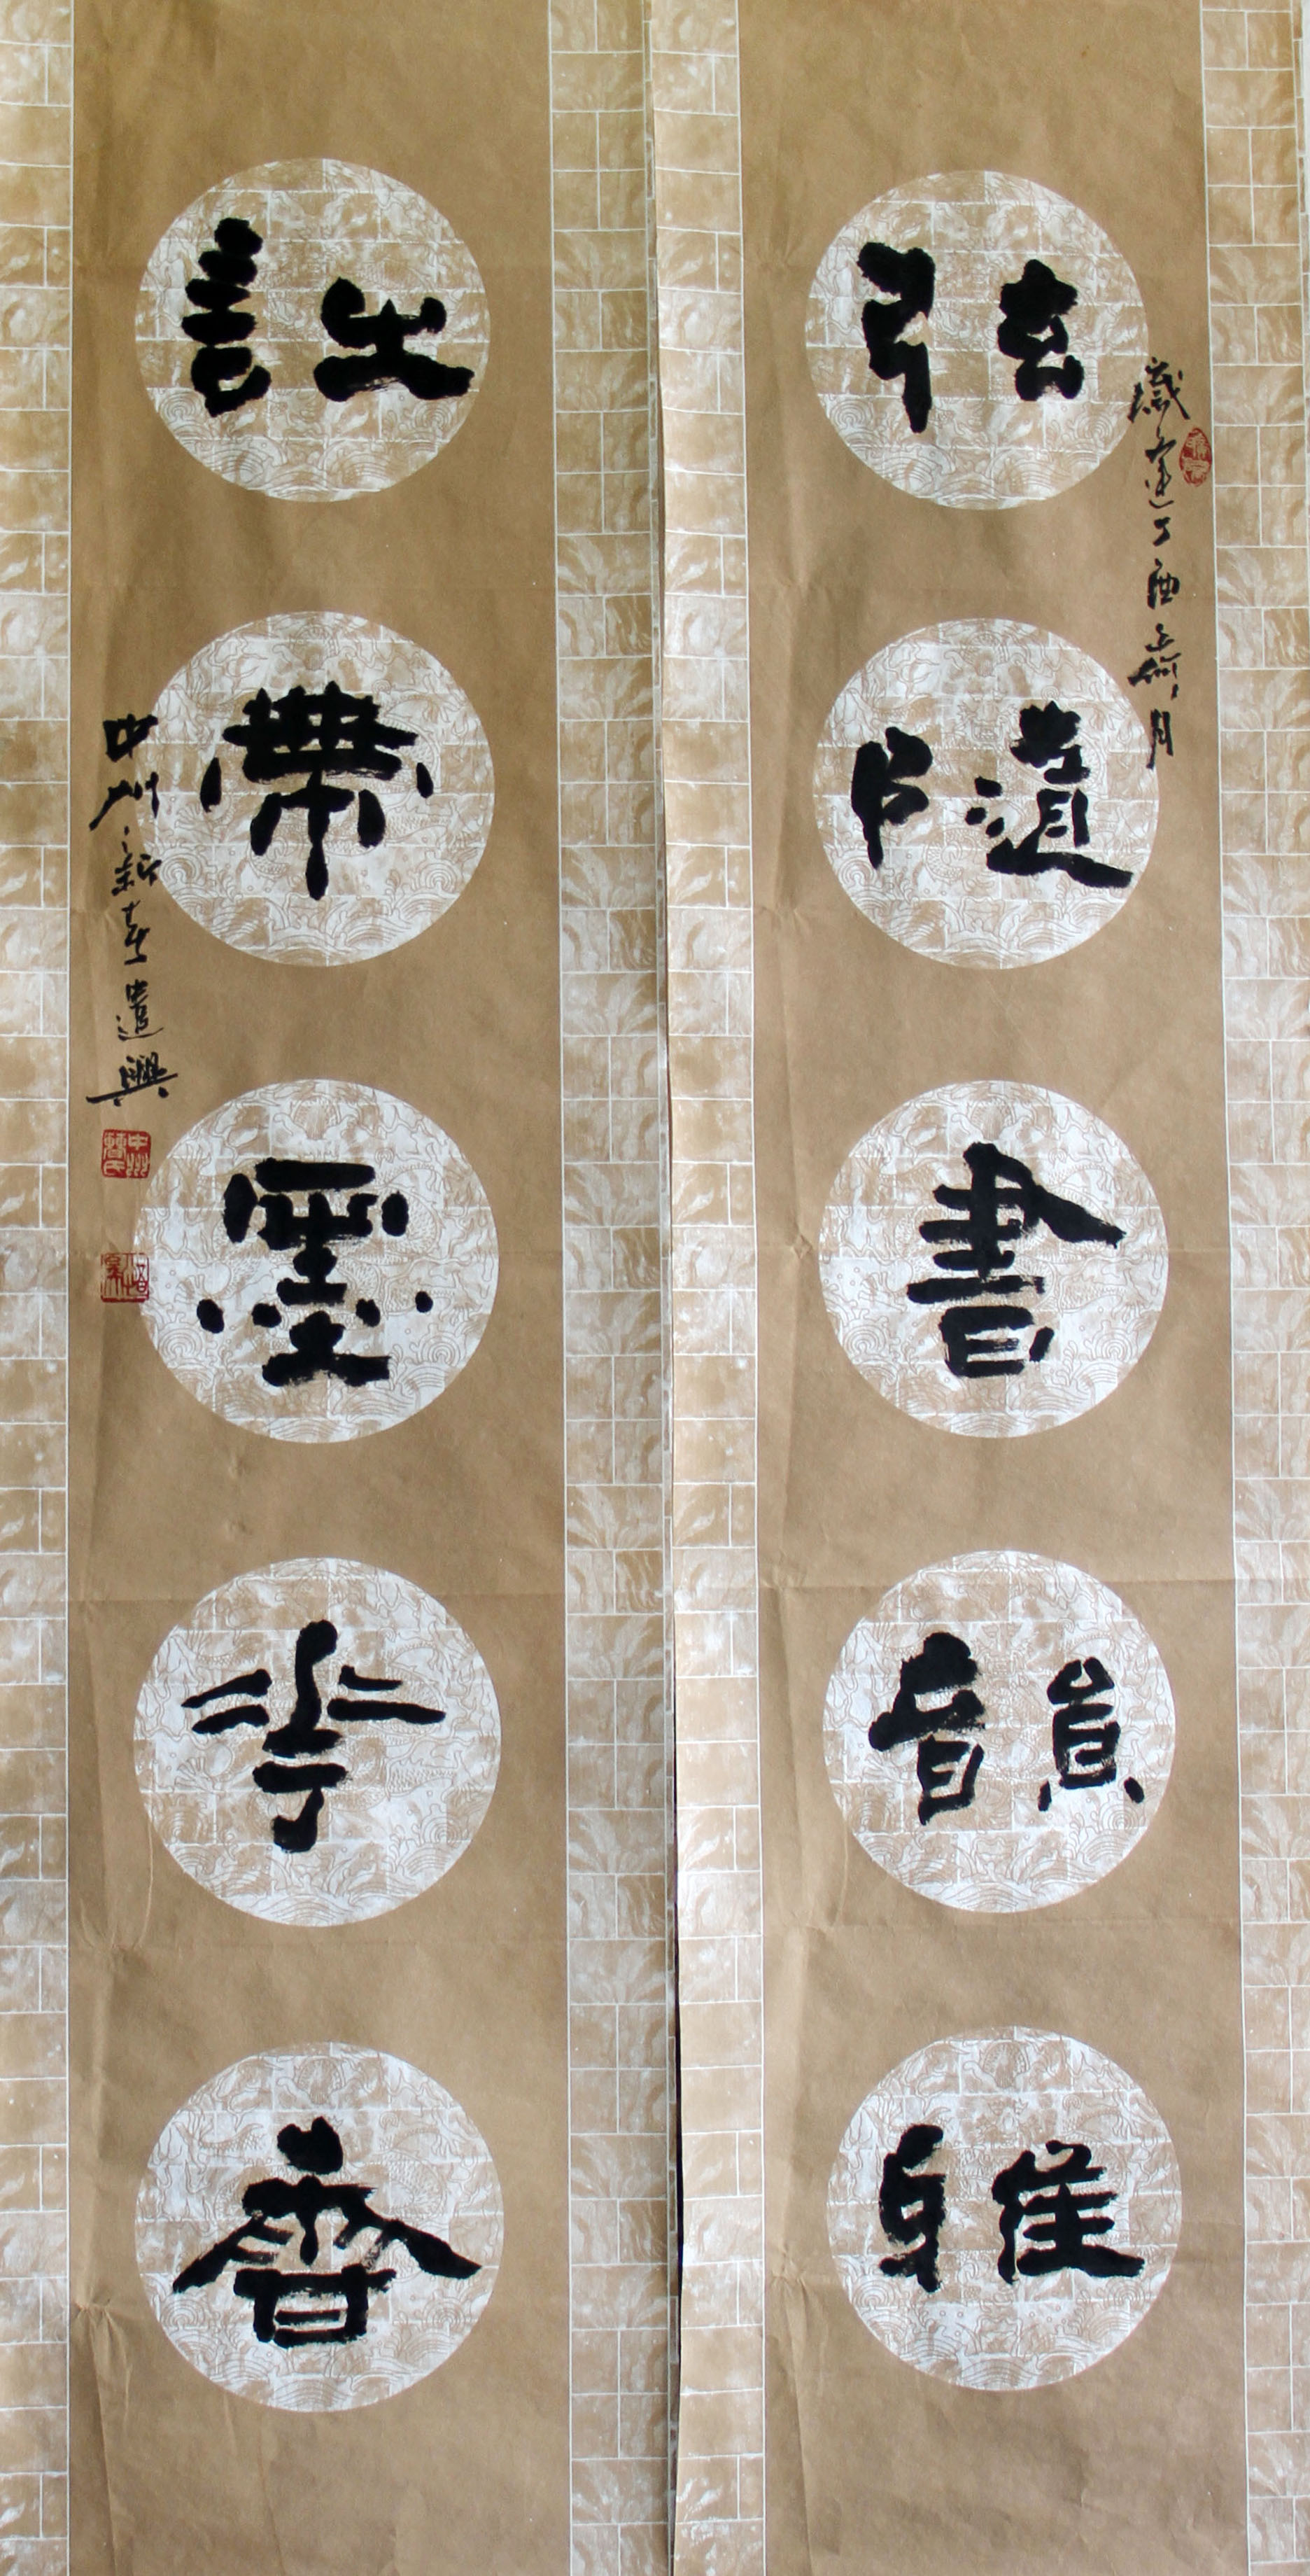 弦隨書韻雅
歲運丁酉荷月
詩帶墨華香
中州新遣興